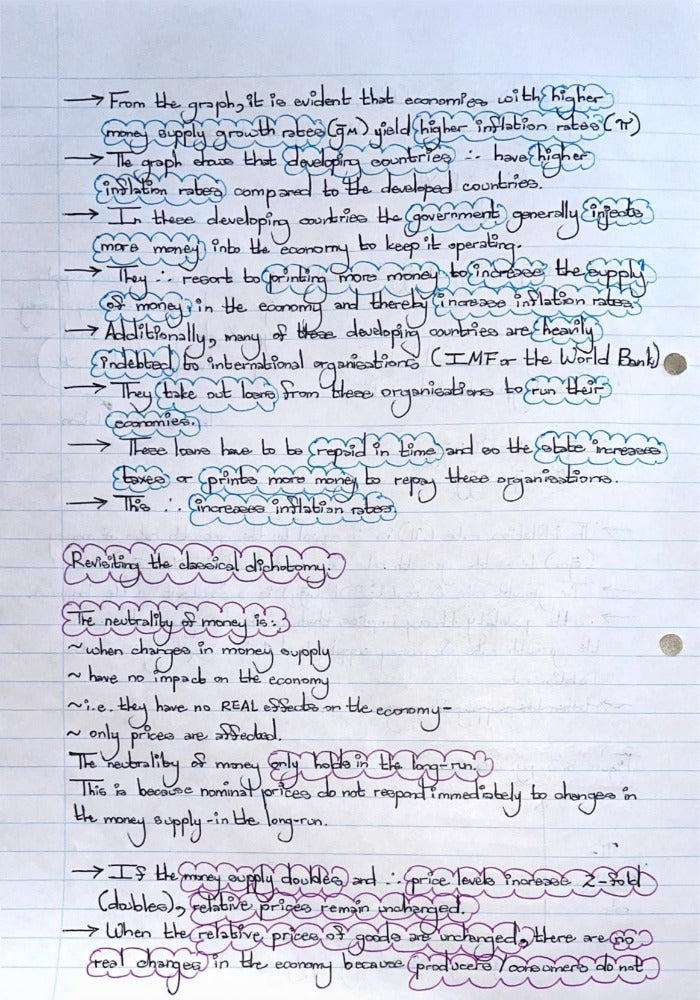 → From the graph, it is evident that economies with higher
money supply growth rates (ḡM) yield higher inflation rates (π)
→ The graph shows that developing countries ∴ have higher
inflation rates compared to the developed countries.
→ In these developing countries the government generally injects
more money into the economy to keep it operating.
→ They ∴ resort to printing more money to increase the supply
of money in the economy and thereby increase inflation rates.
→ Additionally, many of these developing countries are heavily
indebted to international organisations (IMF or the World Bank)
→ They take out loans from these organisations to run their
economies.
→ These loans have to be repaid in time and so the state increases
taxes or prints more money to repay these organisations.
→ This ∴ increases inflation rates
Revisiting the classical dichotomy.
The neutrality of money is:
~ when changes in money supply
~ have no impact on the economy
~ i.e. they have no REAL effects on the economy-
~ only prices are affected.
The neutrality of money only holds in the long-run.
This is because nominal prices do not respond immediately to changes in
the money supply - in the long-run.
→ If the money supply doubles and ∴ price levels increase 2-fold
(doubles), relative prices remain unchanged.
→ When the relative prices of goods are unchanged, there are no
real changes in the economy because producers/consumers do not